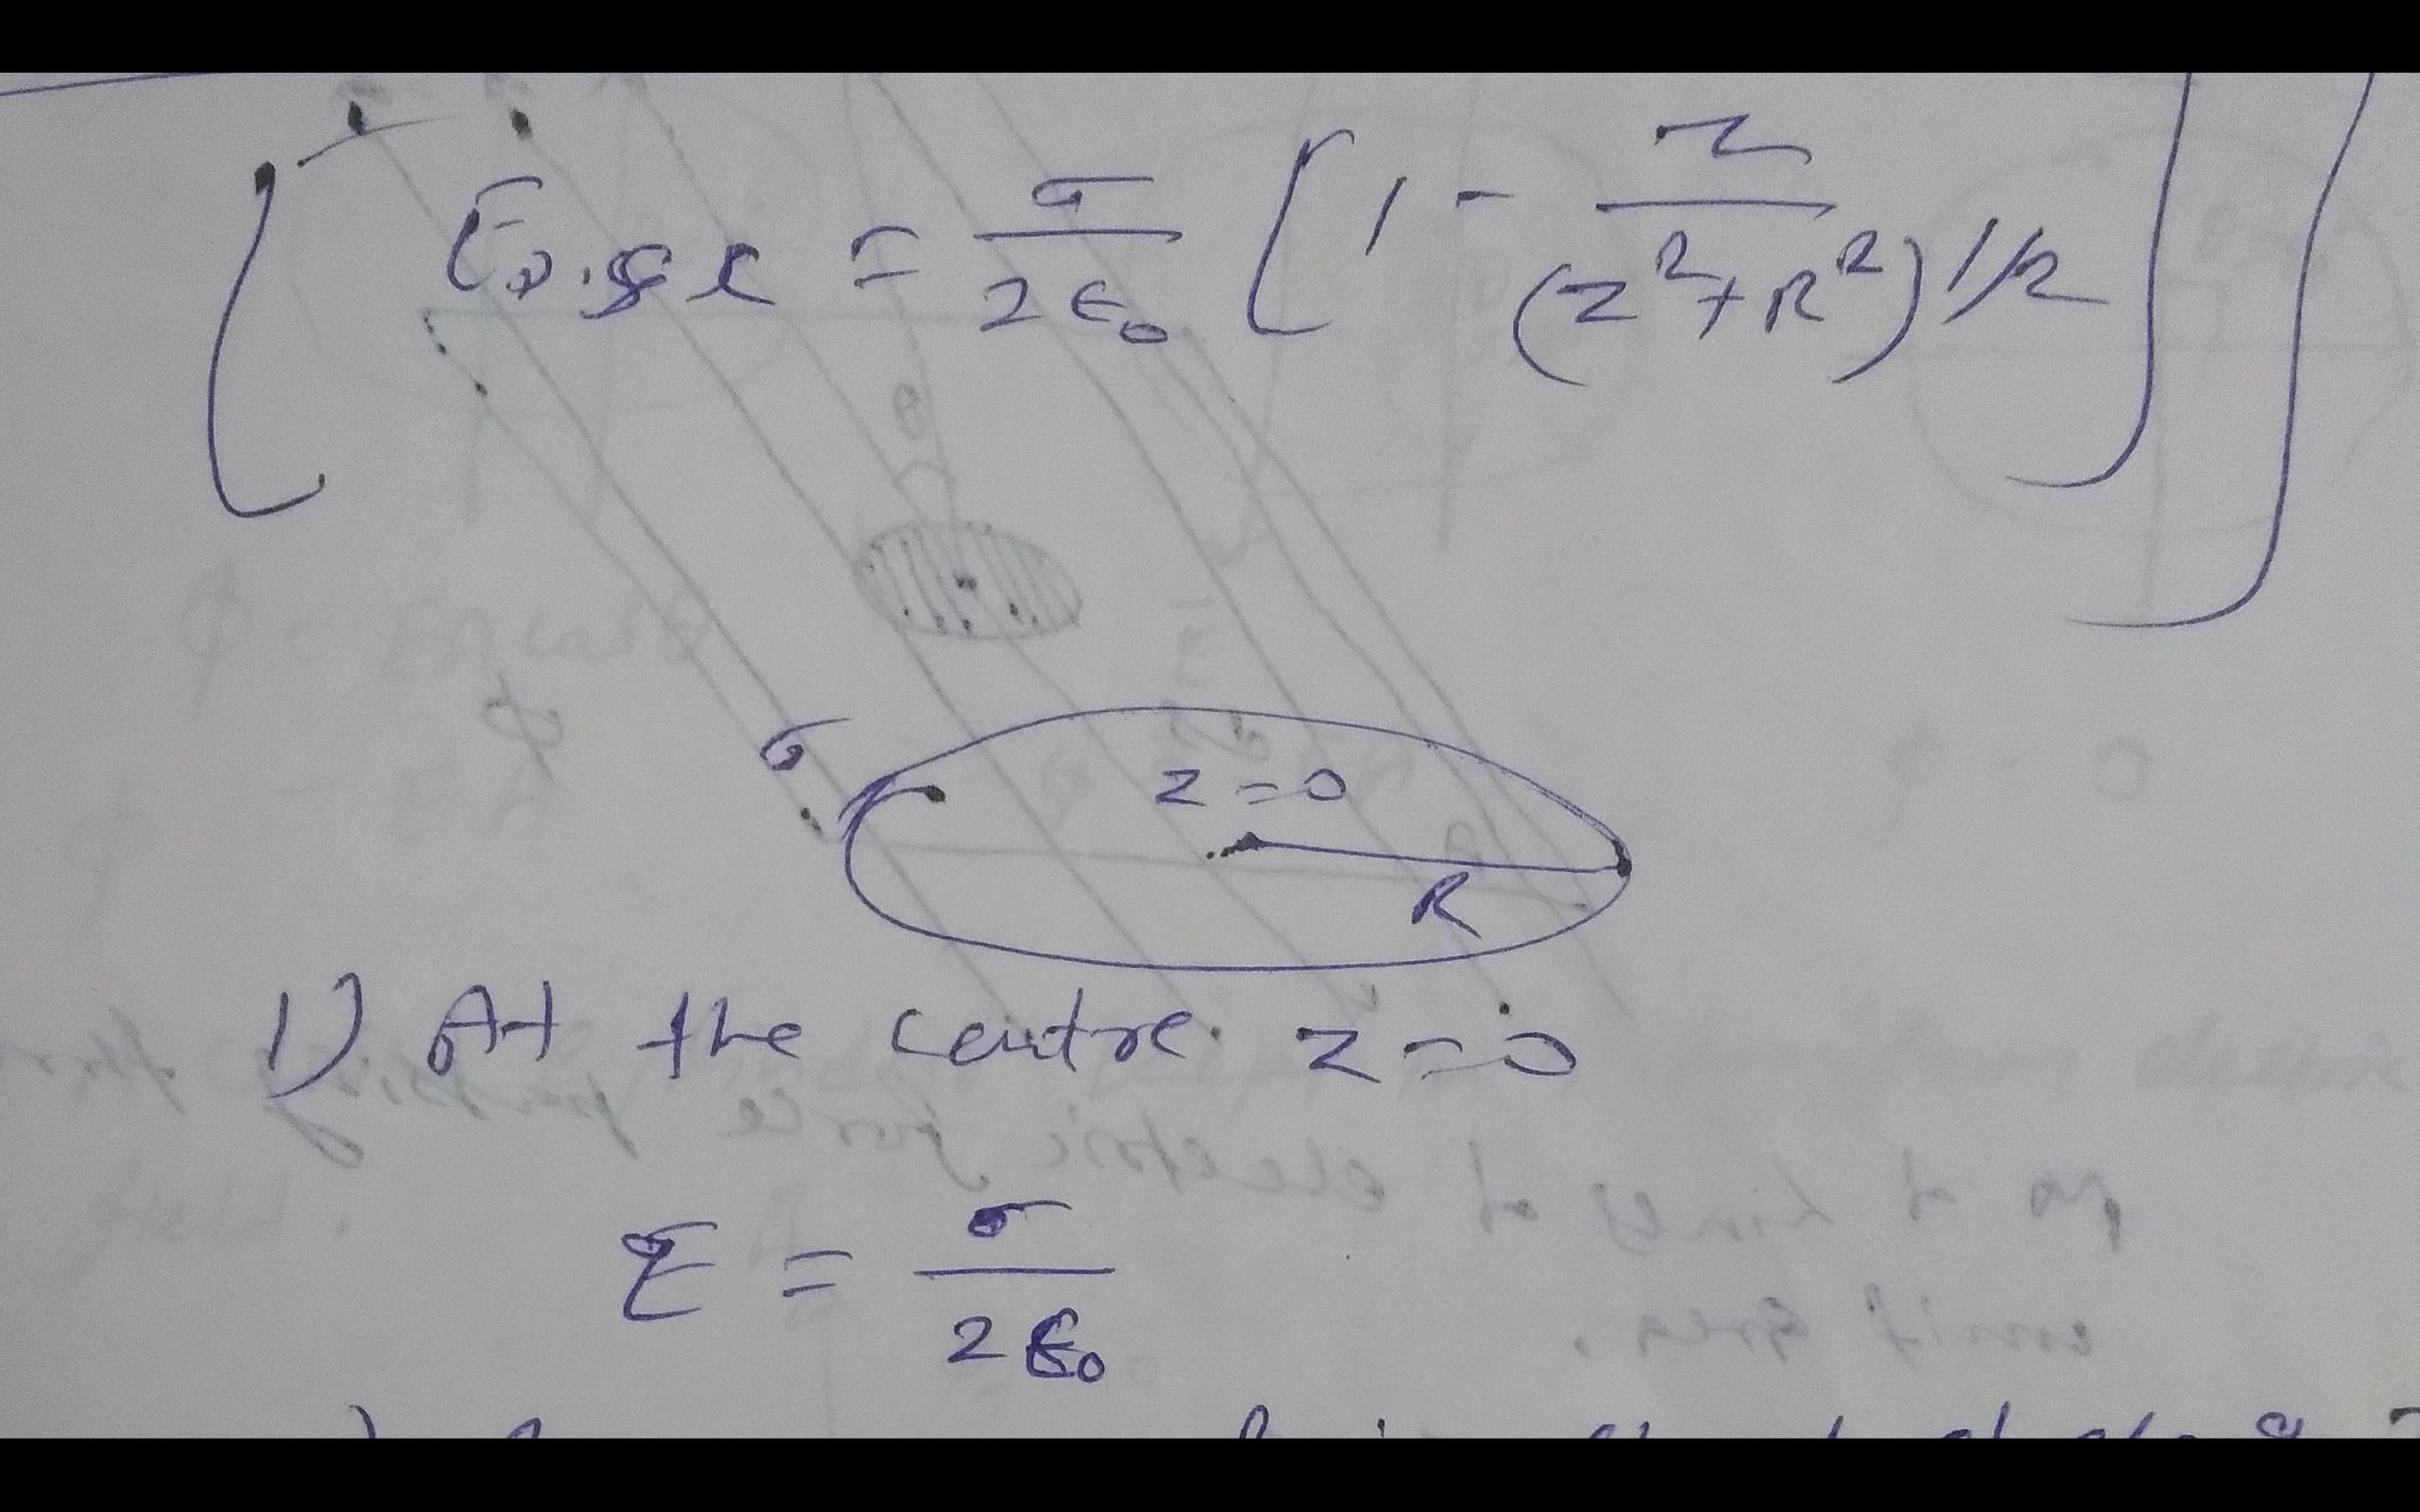 E Disk = σ/2ε₀ [1 - z/(z²+R²)1/2]
σ
z=0
R
1) At the centre z=0
E = σ/2ε₀